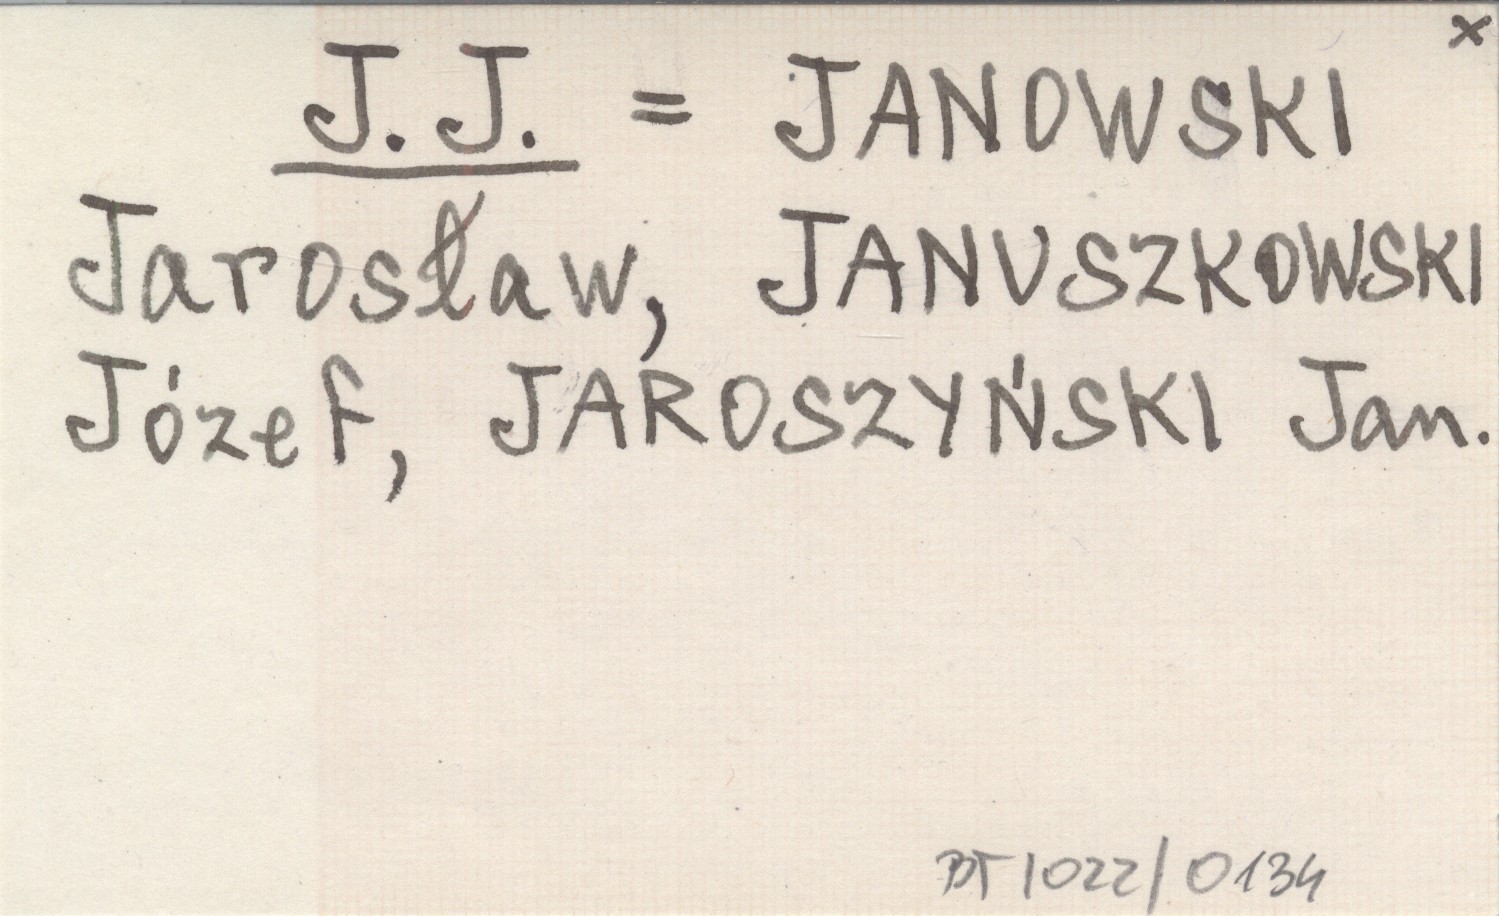 ×
J. J. = JANOWSKI
Jarosław, JANUSZKOWSKI
Józef, JAROSZYŃSKI Jan.
BT 1022/0134